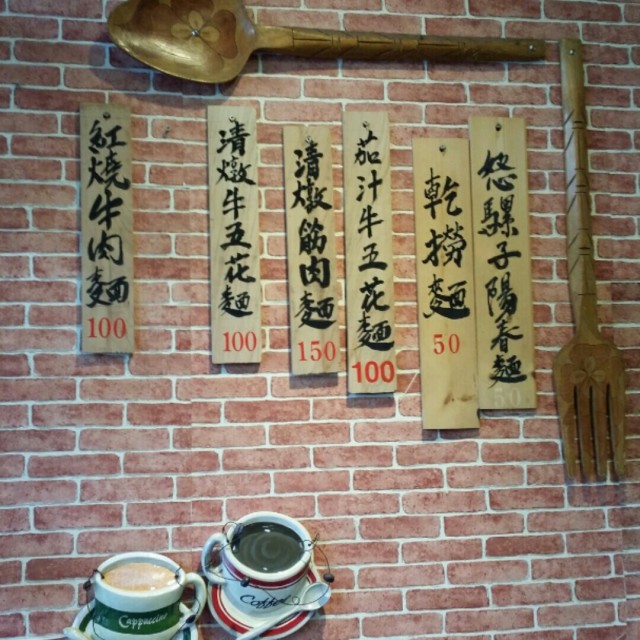 紅燒牛肉麵
100
清燉牛五花麵
100
清燉筋肉麵
150
茄汁牛五花麵
100
乾撈麵
50
悠騾子陽春麵
50
Cappuccino
Coffee